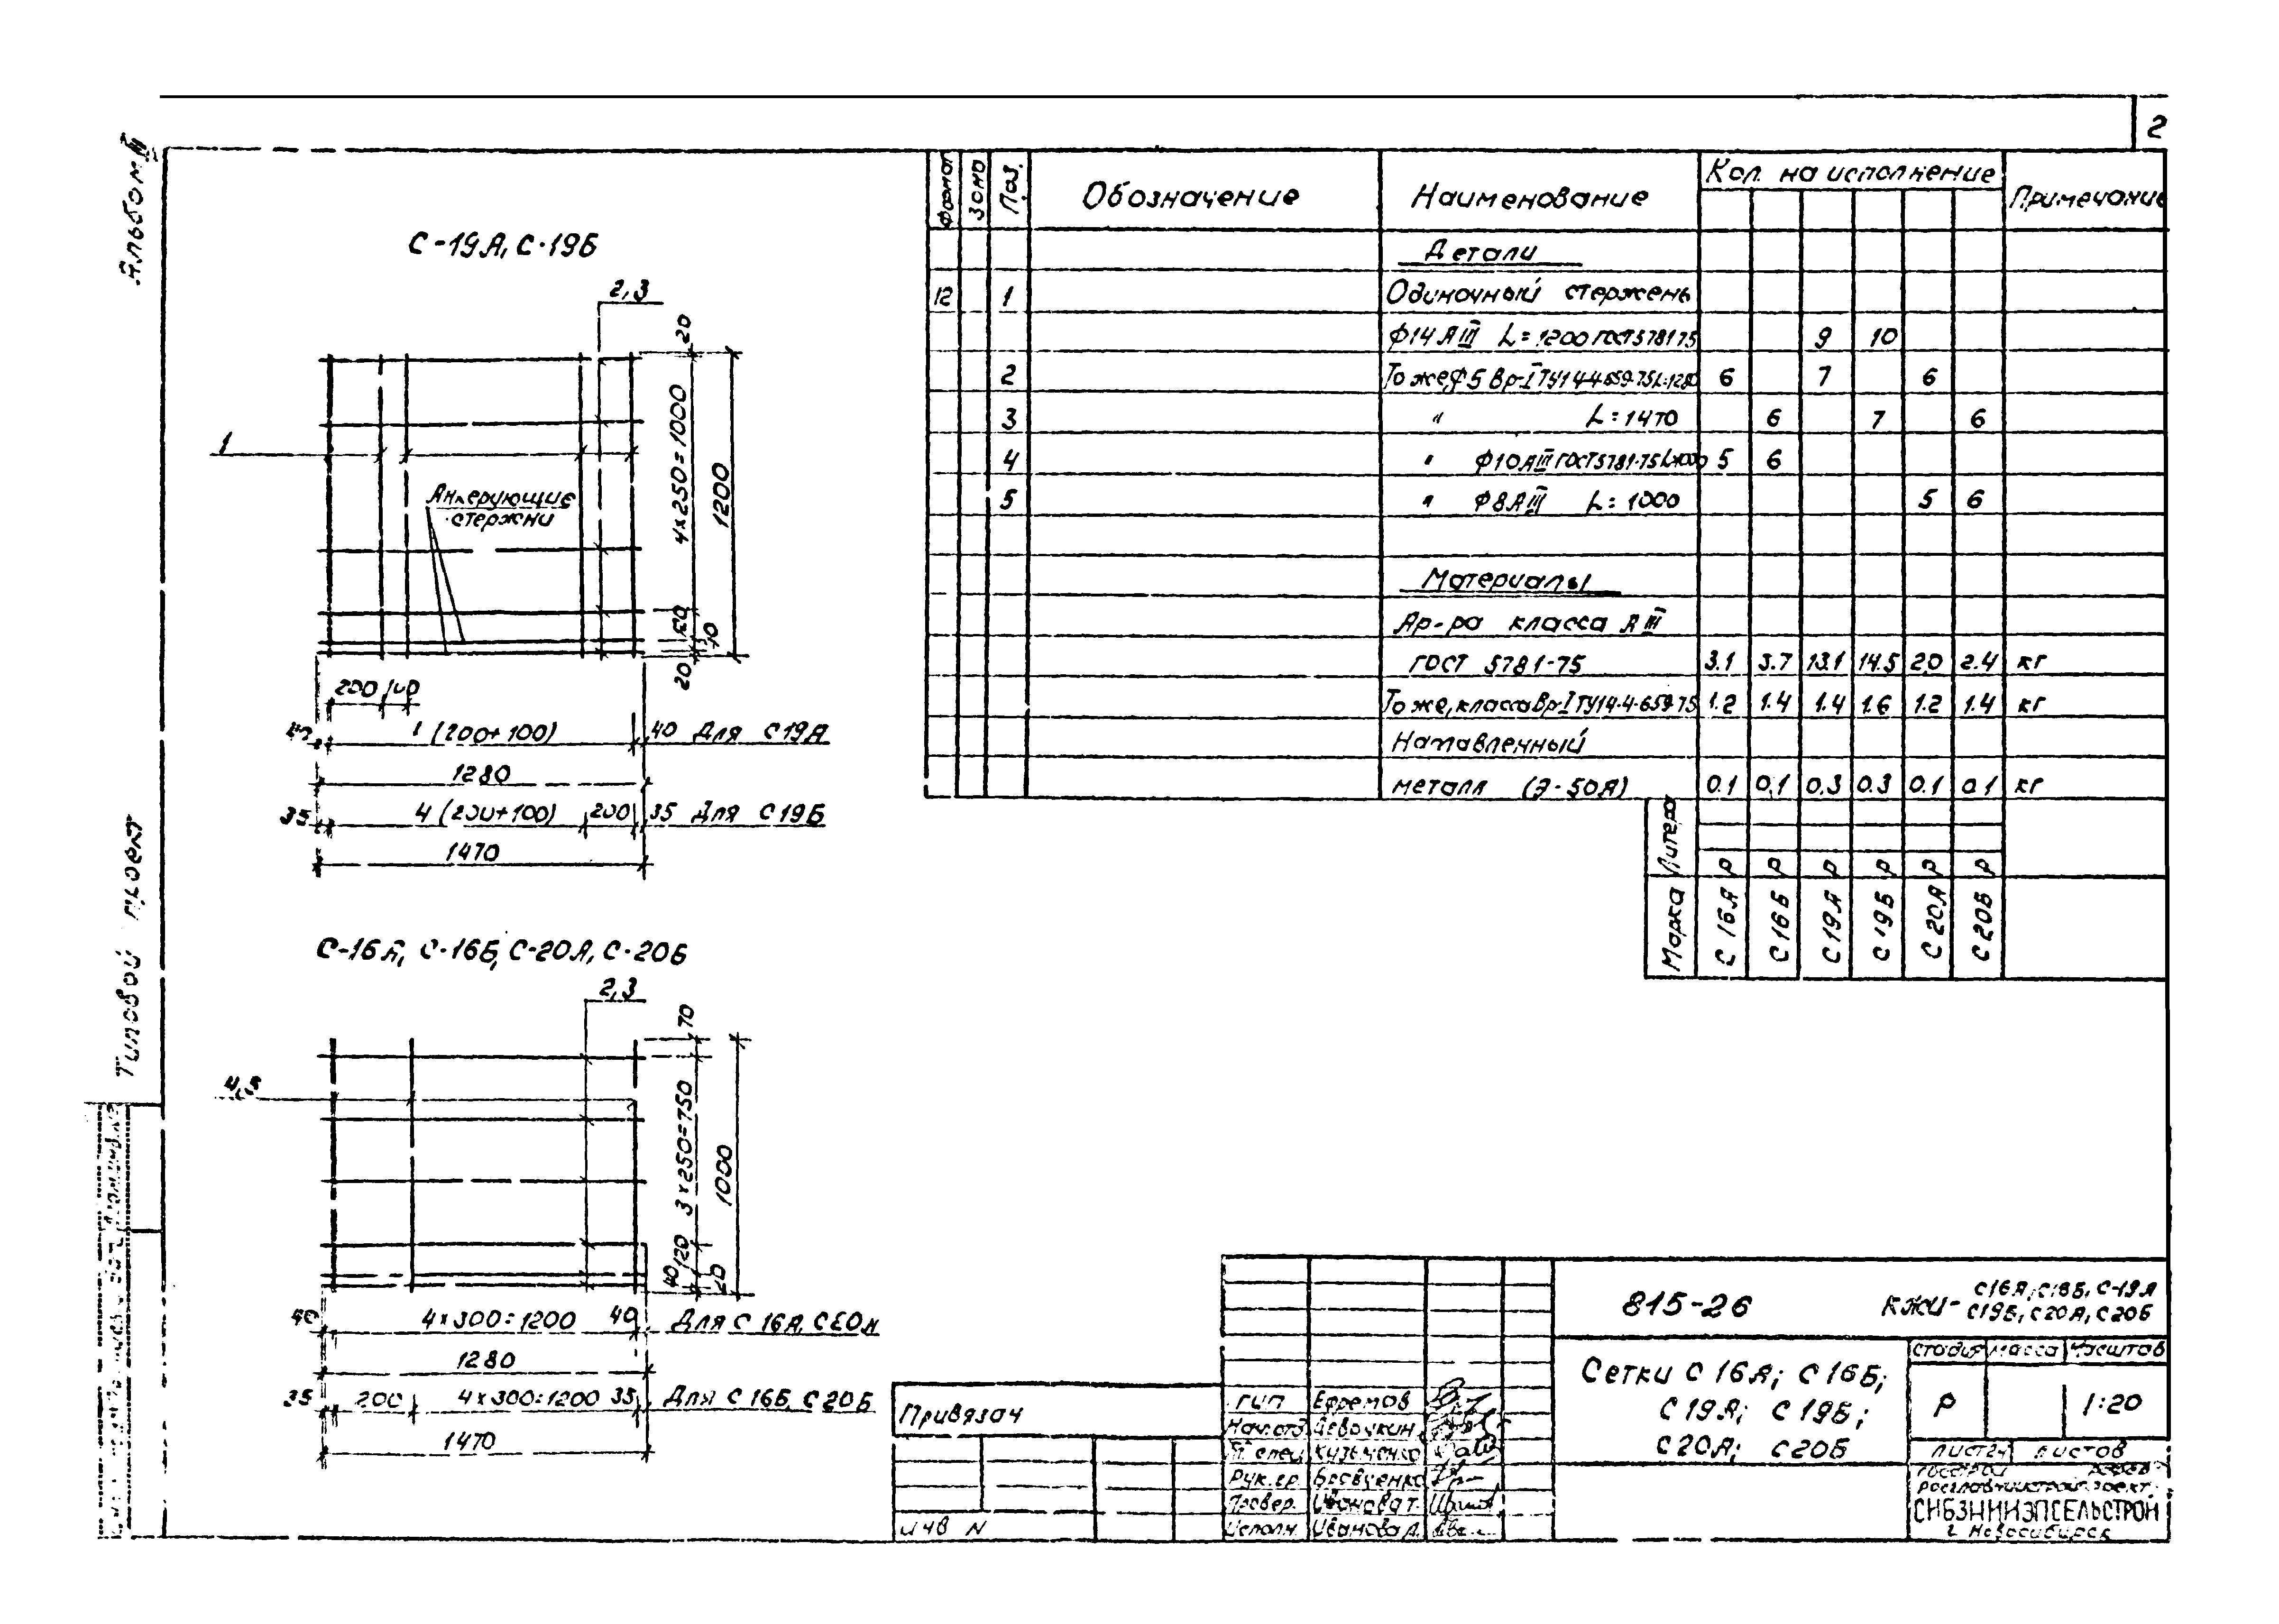 2
Альбом III
Типовой проект
С-19А, С-19Б
2,3
1
Анкерующие
стержни
20
4×250=1000
1200
20
200
(200+100)
40 Для С19А
1280
35
4 (200+100)
200
35 Для С19Б
1470
С-16А, С-16Б, С-20А, С-20Б
2,3
4,5
70
3×250=750
1000
40
120
20
40
4×300=1200
40
Для С 16А, С20А
1280
35
200
4×300=1200
35
Для С 16Б, С 20Б
1470
Формат
Зона
Поз.
Обозначение
Наименование
Кол. на исполнение
Примечание
Детали
12 1 Одиночный стержень
Ф14 АIII L=1200 ГОСТ 5781 75 9 10
2 То же, Ф5 Вр-I ТУ14-4-659-75 L=1280 6 7 6
3 " L=1470 6 7 6
4 " Ф10АIII ГОСТ5781-75 L=1000 5 6
5 " Ф8АIII L=1000 5 6
Материалы
Ар-ра класса АIII
ГОСТ 5781-75 3.1 3.7 13.1 14.5 2.0 2.4 кг
То же, класса Вр-I ТУ14-4-659-75 1.2 1.4 1.4 1.6 1.2 1.4 кг
Наплавленный
металл (Э-50А) 0.1 0.1 0.3 0.3 0.1 0.1 кг
Литера Р Р Р Р Р Р
Марка С 16А С 16Б С 19А С 19Б С 20А С 20Б
815-26
КЖИ-
С16А, С16Б, С-19А
С19Б, С20А, С20Б
Сетки С 16А; С 16Б;
С 19А; С 19Б;
С 20А; С 20Б
стадия масса масштаб
Р 1:20
лист листов
Росглавниистройпроект
СИБЗНИИЭПСЕЛЬСТРОЙ
г. Новосибирск
Привязан
инв N
ГИП Ефремов
Нач.отд Девочкин
спец Кузьменко
Рук.гр.
Провер. Иванова Т.
Исполн. Иванова Л.